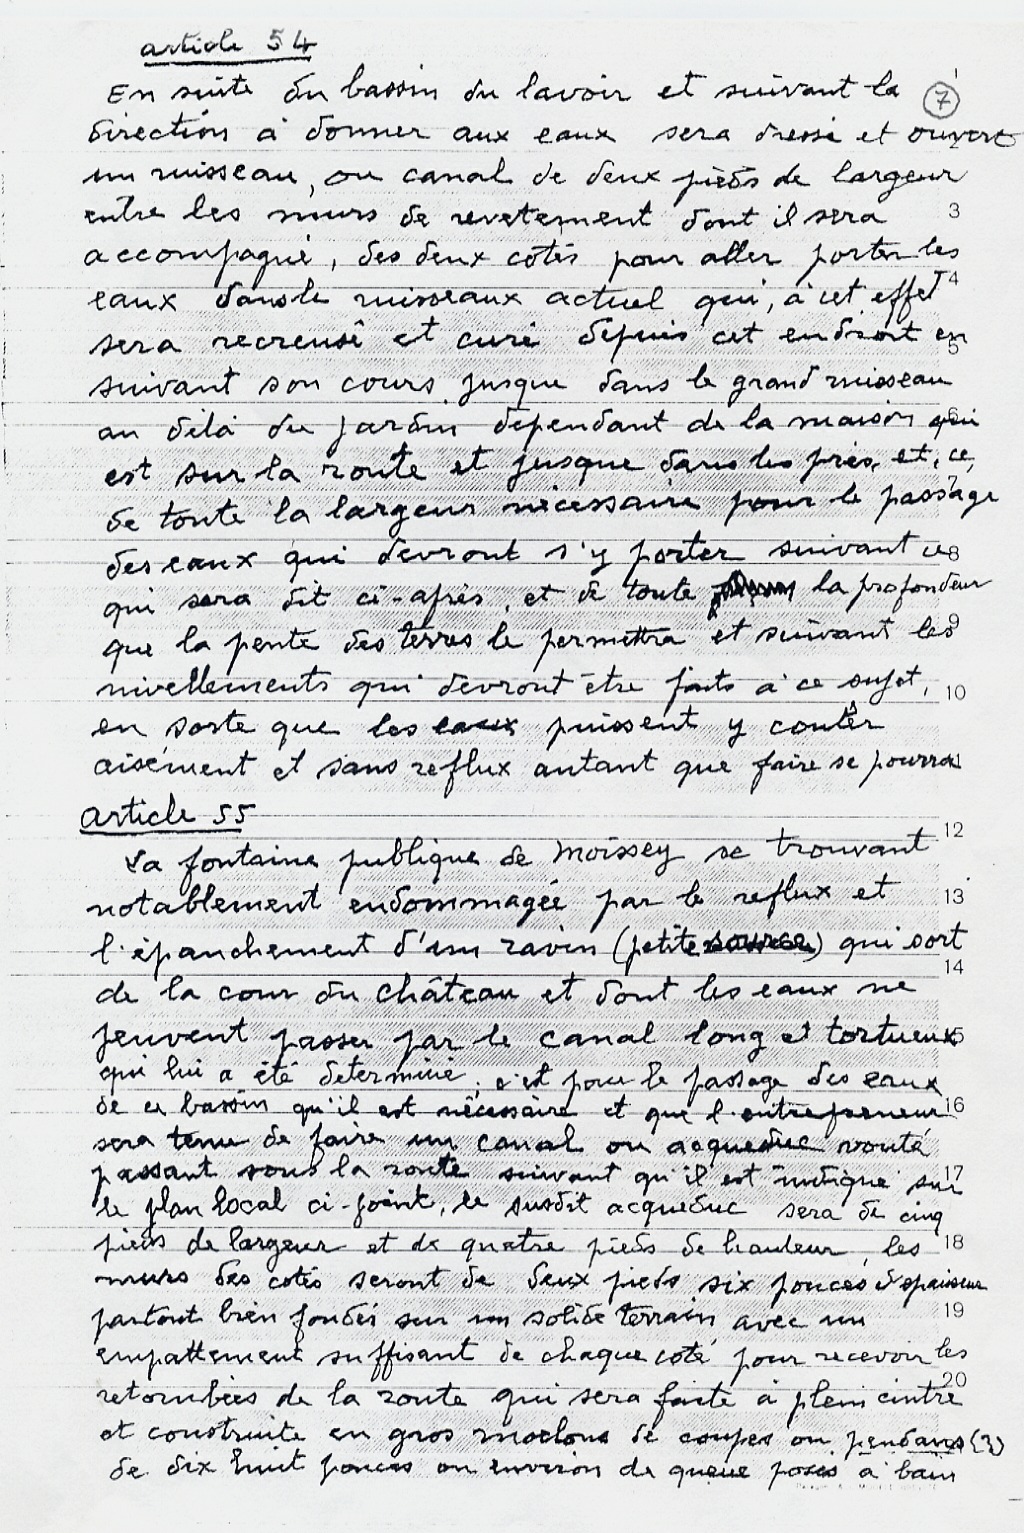 article 54
En suite du bassin du lavoir et suivant la
7
direction à donner aux eaux sera dressé et ouvert
un ruisseau, ou canal de deux pieds de largeur
entre les murs de revetement dont il sera
3
accompagné, des deux cotés pour aller porter les
eaux dans le ruisseaux actuel qui, à cet effet
4
sera recreusé et curé depuis cet endroit en
5
suivant son cours jusque dans le grand ruisseau
au délà du jardin dependant de la maison qui
6
est sur la route et jusque dans les prés, et, ce,
7
de toute la largeur nécessaire pour le passage
des eaux qui devront s'y porter suivant ce
8
qui sera dit ci-après, et de toute la profondeur
que la pente des terres le permettra et suivant les
9
nivellements qui devront être faits à ce sujet,
10
en sorte que les eaux puissent y couler
aisément et sans reflux autant que faire se pourra
article 55
12
La fontaine publique de Moissey se trouvant
notablement endommagée par le reflux et
13
l'épanchement d'un ravin (petite source) qui sort
14
de la cour du château et dont les eaux ne
peuvent passer par le canal long et tortueux
15
qui lui a été determiné, c'est pour le passage des eaux
de ce bassin qu'il est nécessaire et que l'entrepreneur
16
sera tenu de faire un canal ou acqueduc vouté
passant sous la route suivant qu'il est indiqué sur
17
le plan local ci-joint, le susdit acqueduc sera de cinq
pieds de largeur et de quatre pieds de hauteur, les
18
murs des cotés seront de deux pieds six pouces d'epaisseur
partout bien fondés sur un solide terrain avec un
19
empattement suffisant de chaque coté pour recevoir les
20
retombées de la route qui sera faite à plein cintre
et construite en gros moelons de coupes ou pendans (?)
de dix huit pouces ou environ de queue posés à bain